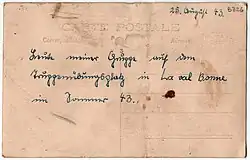 28. August 43.
CARTE POSTALE
Leute meiner Gruppe auf dem
Truppenübungsplatz in La Val Bonne
im Sommer 43.